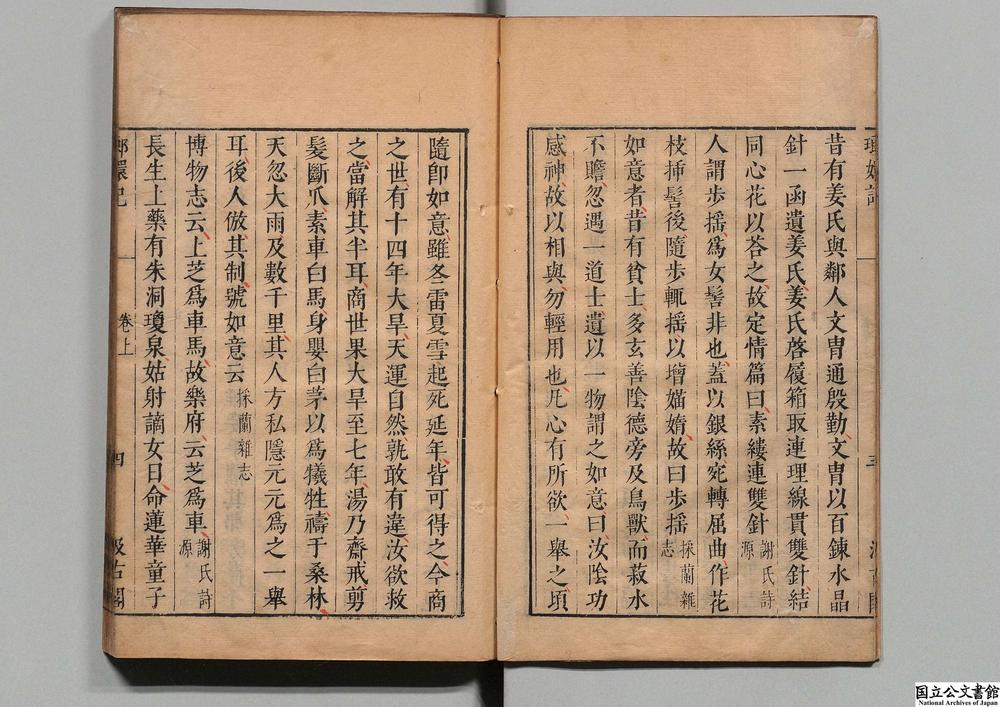 昔有姜氏與鄰人文胄通殷勤文胄以百鍊水晶
針一函遺姜氏姜氏啓履箱取連理線貫雙針結
同心花以荅之故定情篇曰素縷連雙針謝氏詩源
人謂步摇爲女髻非也蓋以銀絲宛轉屈曲作花
枝揷髻後隨步輒摇以增媌媠故曰步摇採蘭雜志
如意者昔有貧士多玄善陰德旁及鳥獸而菽水
不贍忽遇一道士遺以一物謂之如意曰汝陰功
感神故以相與勿輕用也凡心有所欲一舉之頃
隨卽如意雖冬雷夏雪起死延年皆可得之今商
之世有十四年大旱天運自然孰敢有違汝欲救
之當解其半耳商世果大旱至七年湯乃齋戒剪
髮斷爪素車白馬身嬰白茅以爲犧牲禱于桑林
天忽大雨及數千里其人方私隱元元爲之一舉
耳後人倣其制號如意云採蘭雜志
博物志云上芝爲車馬故樂府云芝爲車謝氏詩源
長生上藥有朱洞瓊泉姑射謫女日命蓮華童子
卷上
四
国立公文書館
National Archives of Japan